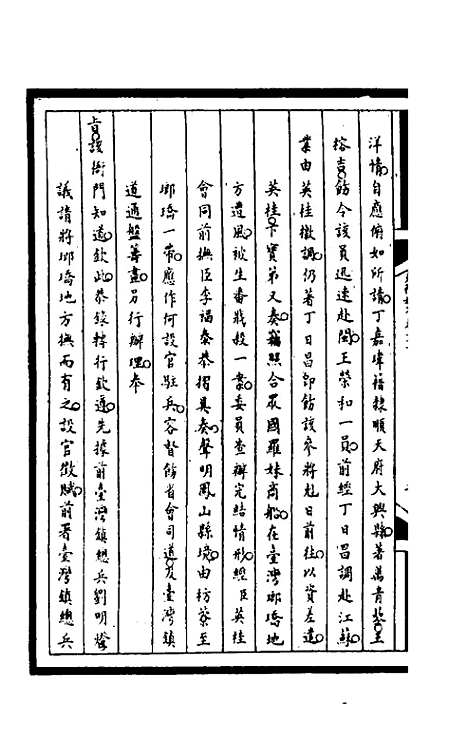 洋情自應俯如所請丁嘉瑋籍隸順天府大興縣著萬青藜王
榕吉飭令該員迅速赴閩王榮和一員前經丁日昌調赴江蘇
業由英桂檄調仍著丁日昌即飭該參將尅日前往以資差遣
英桂卞寶第又奏竊照合眾國羅妹商船在臺灣瑯𤩝地
方遭風被生番戕殺一案委員查辦完結情形經臣英桂
會同前撫臣李福泰恭摺具奏聲明鳳山縣境由枋藔至
瑯𤩝一帶應作何設官駐兵容督飭省會司道及臺灣鎮
道通盤籌畫另行辦理奉
旨該衙門知道欽此恭錄轉行欽遵先據前臺灣鎮總兵劉明燈
議請將瑯𤩝地方撫而有之設官徵賦前署臺灣鎮總兵